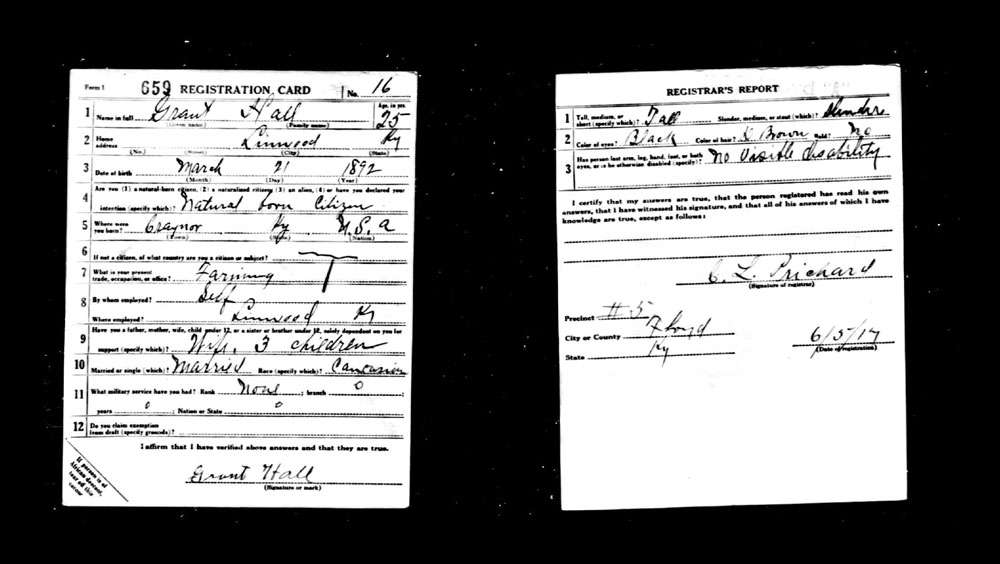 Form 1 659 REGISTRATION CARD No. 16
1 Name in full Grant Hall Age, in yrs. 25
(Given name) (Family name)
2 Home address Linwood Ky
(No.) (Street) (City) (State)
3 Date of birth March 21 1892
(Month) (Day) (Year)
4 Are you (1) a natural-born citizen, (2) a naturalized citizen, (3) an alien, (4) or have you declared your
intention (specify which)? Natural born Citizen
5 Where were you born? Craynor Ky U.S.A
(Town) (State) (Nation)
6 If not a citizen, of what country are you a citizen or subject?
7 What is your present trade, occupation, or office? Farming
8 By whom employed? Self
Where employed? Linwood Ky
9 Have you a father, mother, wife, child under 12, or a sister or brother under 12, solely dependent on you for
support (specify which)? Wife, 3 children
10 Married or single (which)? Married Race (specify which)? Caucasian
11 What military service have you had? Rank None ; branch 0 ;
years 0 ; Nation or State 0
12 Do you claim exemption from draft (specify grounds)?
I affirm that I have verified above answers and that they are true.
Grant Hall
(Signature or mark)
If person is of
African descent,
tear off this
corner
REGISTRAR'S REPORT
1 Tall, medium, or short (specify which)? Tall Slender, medium, or stout (which)?
2 Color of eyes? Black Color of hair? D Brown Bald? No
3 Has person lost arm, leg, hand, foot, or both
eyes, or is he otherwise disabled (specify)? No visible disability
I certify that my answers are true, that the person registered has read his own
answers, that I have witnessed his signature, and that all of his answers of which I have
knowledge are true, except as follows:
C. L. Prichard
(Signature of registrar)
Precinct # 5
City or County Floyd
State Ky
6/5/17
(Date of registration)